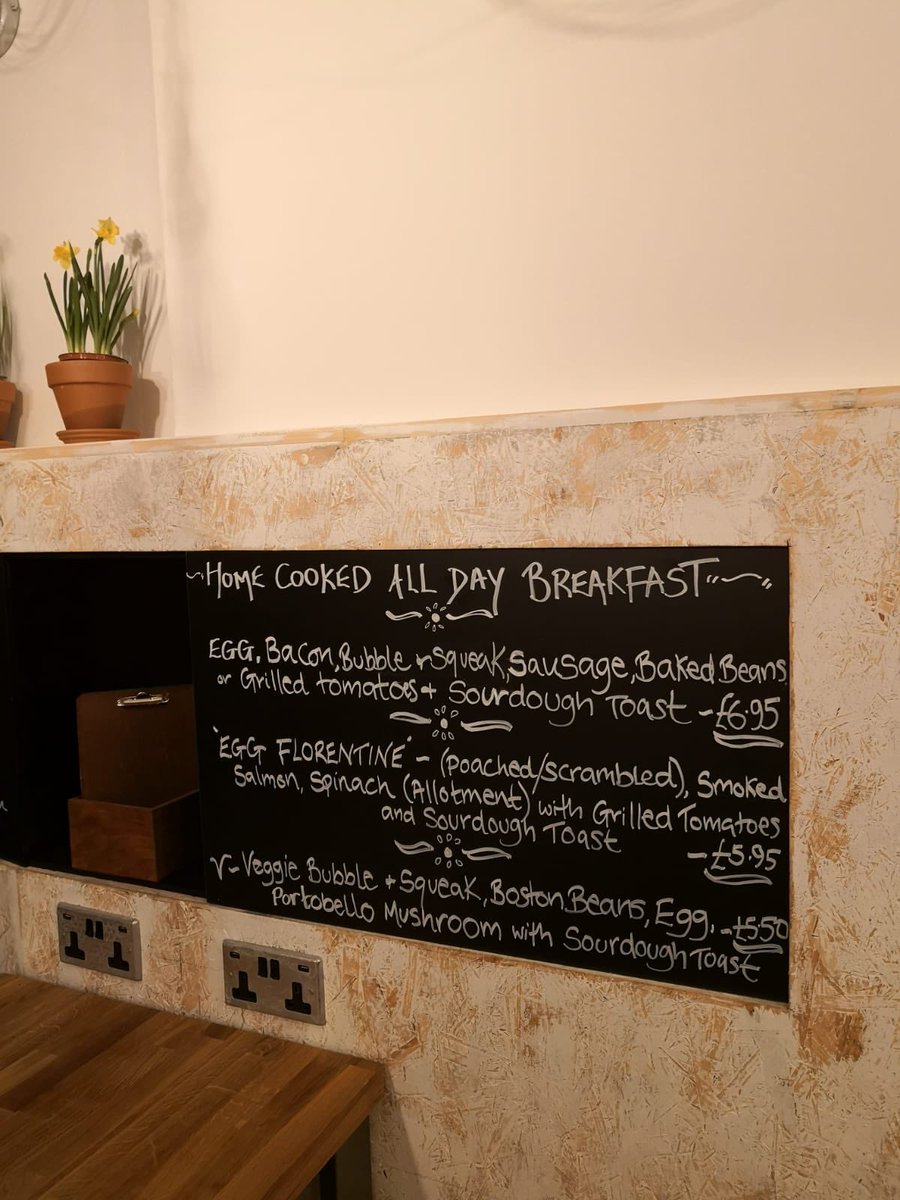 HOME COOKED ALL DAY BREAKFAST
EGG, Bacon, Bubble + Squeak, Sausage, Baked Beans
or Grilled tomatoes + Sourdough Toast - £6.95
"EGG FLORENTINE" - (poached/scrambled), Smoked
Salmon, Spinach (Allotment) with Grilled Tomatoes
and Sourdough Toast
- £5.95
V - Veggie Bubble + Squeak, Boston Beans, Egg, - £5.50
Portobello Mushroom with Sourdough Toast